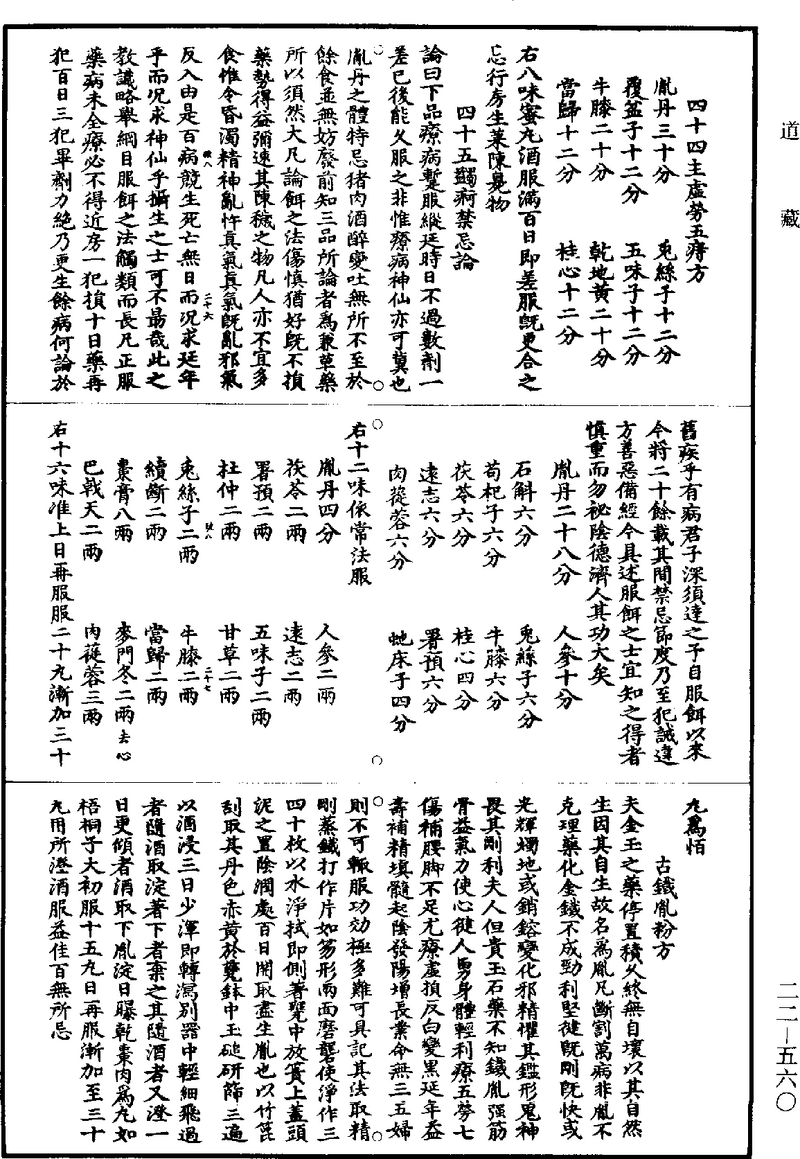 道藏
四十四主虛勞五痔方
胤丹三十分　兎絲子十二分
覆盆子十二分　五味子十二分
牛膝二十分　乾地黃二十分
當歸十二分　桂心十二分
右八味蜜丸酒服滿百日即差服旣更合之
忌行房生菜陳臭物
四十五蠲痾禁忌論
論曰下品療病蹔服縱延時日不過數劑一
差已後能久服之非惟療病神仙亦可冀也
胤丹之體特忌猪肉酒醉變吐無所不至於
餘食並無妨廢前知三品所論者爲兼草藥
所以須然大凡論餌之法傷慎猶好旣不損
藥勢得益彌速其陳穢之物凡人亦不宜多
食惟令昏濁精神亂忤真氣真氣旣亂邪氣
反入由是百病競生死亡無日而況求延年
乎而況求神仙乎攝生之士可不最哉此之
教誡略舉綱目服餌之法觸類而長凡正服
藥病未全療必不得近房一犯損十日藥再
犯百日三犯畢劑力絶乃更生餘病何論於
舊疾乎有病君子深須達之予自服餌以來
今將二十餘載其間禁忌節度乃至犯誡違
方善惡備經今具述服餌之士宜知之得者
慎重而勿祕陰德濟人其功大矣
胤丹二十八分　人參十分
石斛六分　兎絲子六分
苟杞子六分　牛膝六分
茯苓六分　桂心四分
遠志六分　署預六分
肉蓯蓉六分　虵床子四分
右十二味依常法服
胤丹四分　人參二兩
茯苓二兩　遠志二兩
署預二兩　五味子二兩
杜仲二兩　甘草二兩
兎絲子二兩　牛膝二兩
續斷二兩　當歸二兩
棗膏八兩　麥門冬二兩去心
巴戟天二兩　肉蓯蓉三兩
右十六味准上日再服服二十丸漸加三十
丸爲恒
古鐵胤粉方
夫金玉之藥停置積久終無自壞以其自然
生因其自生故名爲胤凡斷割萬病非胤不
克理藥化金鐵不成勁利堅徤旣剛旣快或
光輝爥地或銷鎔變化邪精懼其鑑形鬼神
畏其剛利夫人但貴玉石藥不知鐵胤强筋
骨益氣力使心徤人勇身體輕利療五勞七
傷補腰脚不足尤療虛損反白變黑延年益
壽補精填髓起陰發陽增長業命無三五婦
則不可輙服功効極多難可具記其法取精
剛蒸鐵打作片如笏形兩面磨礱使淨作三
四十枚以水淨拭即側著甕中放簀上蓋頭
泥之置陰潤處百日開取盡生胤也以竹篦
刮取其丹色赤黄於甕鉢中玉槌研篩三遍
以酒浸三日少渾即轉瀉別器中輕細飛過
者隨酒取淀著下者棄之其隨酒者又澄一
日更傾者酒取下胤淀日曝乾棗肉爲丸如
梧桐子大初服十五丸日再服漸加至三十
丸用所澄酒服益佳百無所忌
二二—五六〇